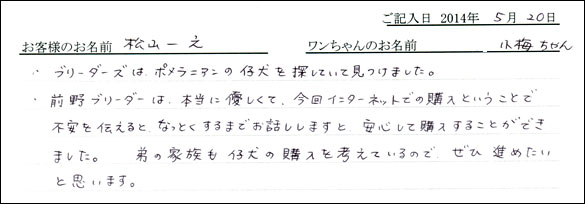 ご記入日 2014年 5月 20日
お客様のお名前 松山一之 ワンちゃんのお名前 小梅ちゃん
・ブリーダーズは、ポメラニアンの仔犬を探していて見つけました。
・前野ブリーダーは、本当に優しくて、今回インターネットでの購入ということで
不安を伝えると、なっとくするまでお話ししますと、安心して購入することができ
ました。 弟の家族も仔犬の購入を考えているので、ぜひ進めたい
と思います。